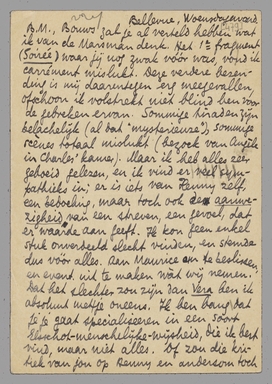 Bellevue, Woensdagavond
B.M., Bouws zal je al verteld hebben wat
ik van de Marsman denk. Het 1e fragment
(Soirée) waar jij nog zwak vóór was, vond ik
carrément mislukt. Deze verdere bezen-
ding is mij daarentegen erg meegevallen,
ofschoon ik volstrekt niet blind ben voor
de gebreken ervan. Sommige tiraden zijn
belachelijk (al dat "mysterieuze"), sommige
scènes totaal mislukt (bezoek van Angèle
in Charles' kamer). Maar ik heb alles zeer
geboeid gelezen, en ik vind er veel sym-
pathieks in; er is iets van Henny zelf,
een bedoeling, maar toch ook de aanwe-
zigheid van een streven, een gevoel, dat
er waarde aan geeft. Ik kon geen enkel
stuk onverdeeld slecht vinden, en stemde
dus vóór alles. Aan Maurice om te beslissen
en event. uit te maken wat wij nemen.
Dat het slechter zou zijn dan Vera ben ik
absoluut niet mee oneens. Ik ben bang dat
je je gaat specialiseeren in een soort
Elsschot-menschelijke-wijsheid, die ik best
vind, maar niet alles. Of zou die kri-
tiek van jou op Henny en anderson toch